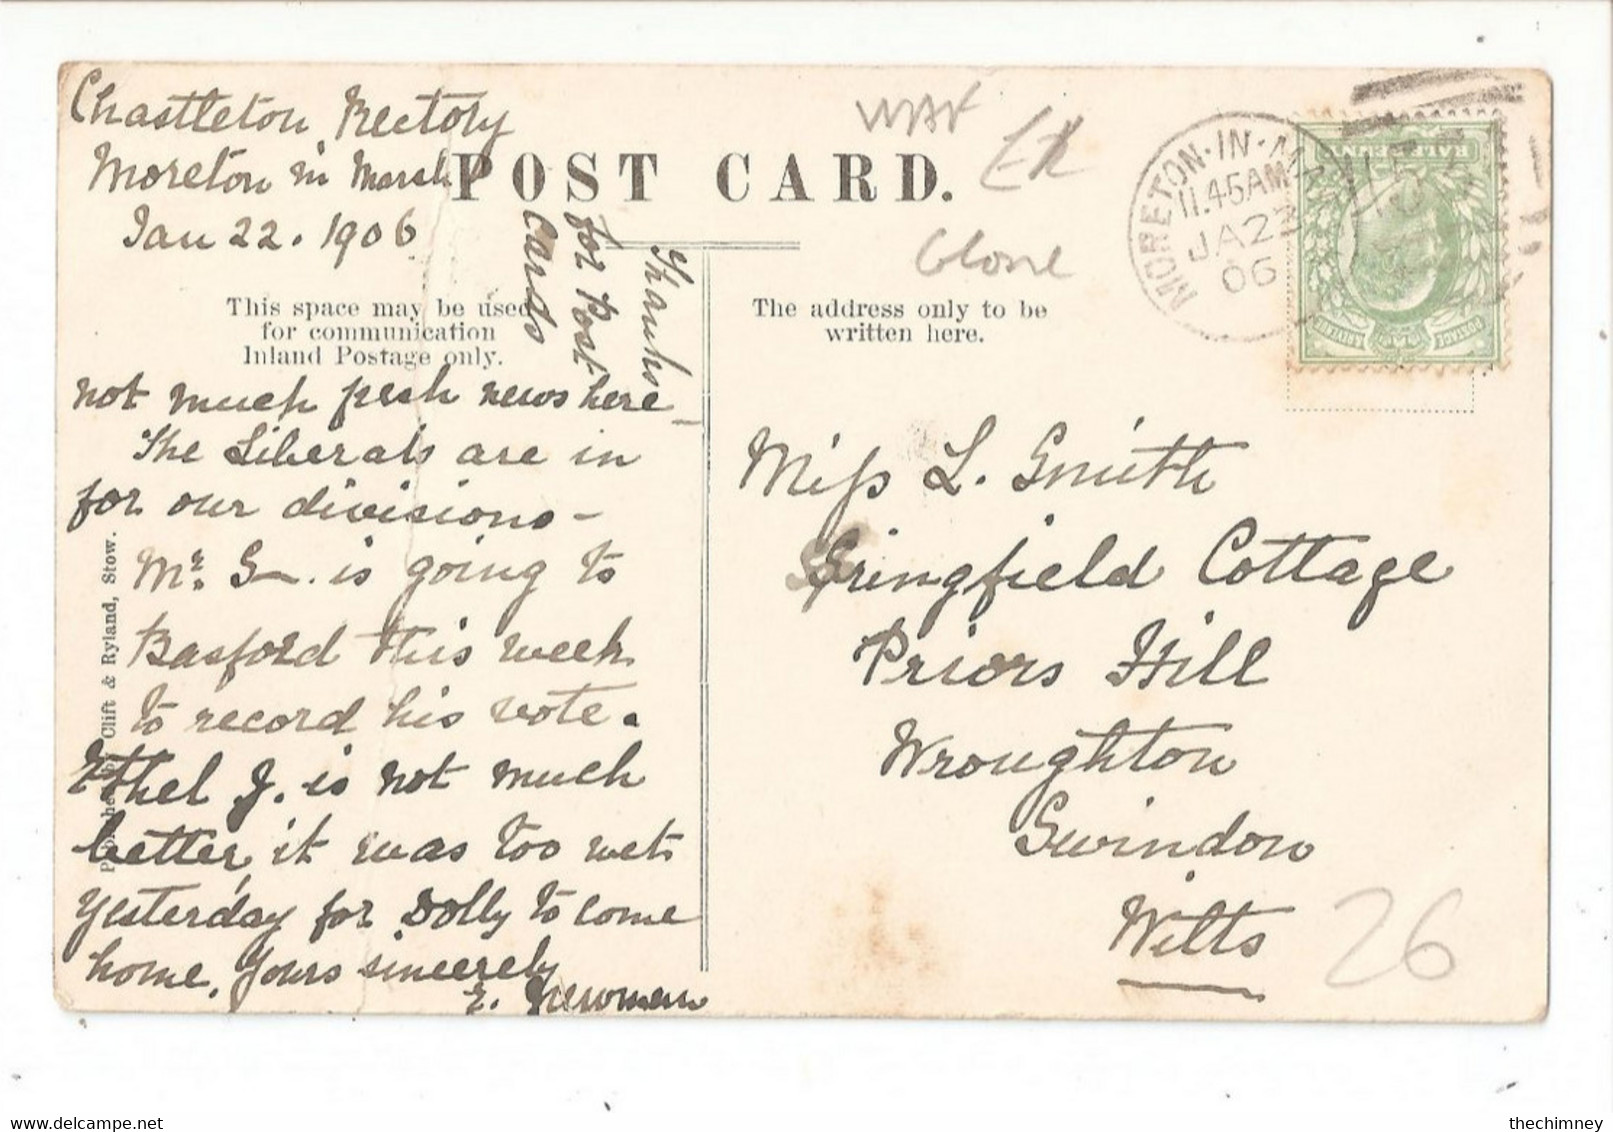 Chastleton Rectory
Moreton in Marsh
Jan 22. 1906
POST CARD.
Thanks
for Post
Cards
This space may be used
for communication
Inland Postage only.
The address only to be
written here.
not much fresh news here –
The Liberals are in
for our divisions –
Mr. G–. is going to
Basford this week
to record his vote.
Ethel J. is not much
better, it was too wet
yesterday for Dolly to come
home. Yours sincerely
E. Newman
Miss L. Smith
Springfield Cottage
Priors Hill
Wroughton
Swindon
Wilts
MORETON·IN·MA
11.45AM
JA23
06
HALFPENNY
POSTAGE
by Clift & Ryland, Stow.
Glos
26
thechimney